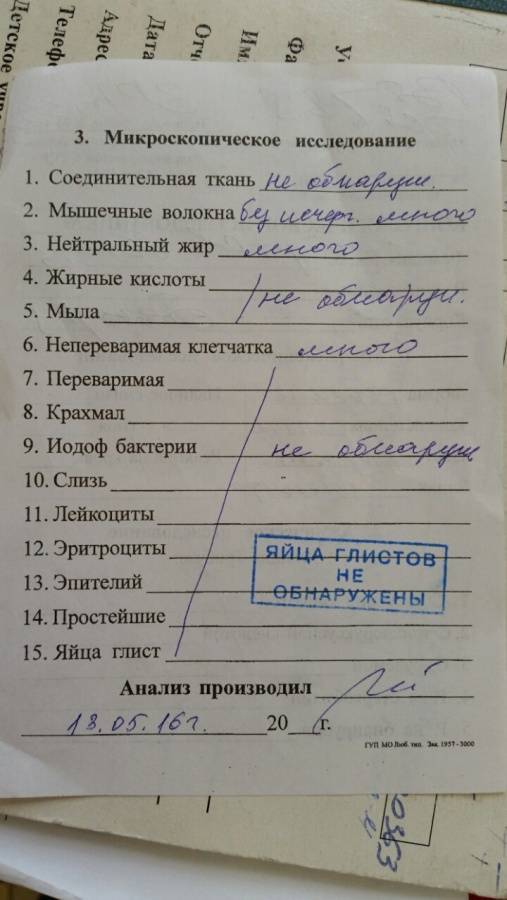 Детское учре
Телефо
Адрес
Дата
Отч
Им
Фа
3. Микроскопическое исследование
1. Соединительная ткань не обнаруж.
2. Мышечные волокна без исчерч. много
3. Нейтральный жир много
4. Жирные кислоты
не обнаруж.
5. Мыла
6. Непереваримая клетчатка много
7. Переваримая
8. Крахмал
9. Иодоф бактерии не обнаруж
10. Слизь
11. Лейкоциты
12. Эритроциты
13. Эпителий
14. Простейшие
15. Яйца глист
ЯЙЦА ГЛИСТОВ
НЕ
ОБНАРУЖЕНЫ
Анализ производил
13.05.16г. 20 г.
ГУП МО Люб. тип. Зак. 1957-3000